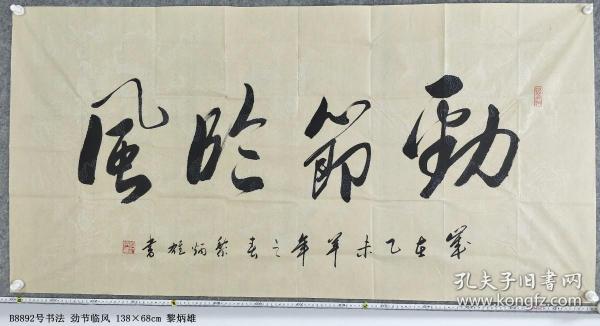 勁節臨風
歲在乙未羊年之春黎炳雄書
孔夫子旧书网
B8892号书法 劲节临风 138×68cm 黎炳雄